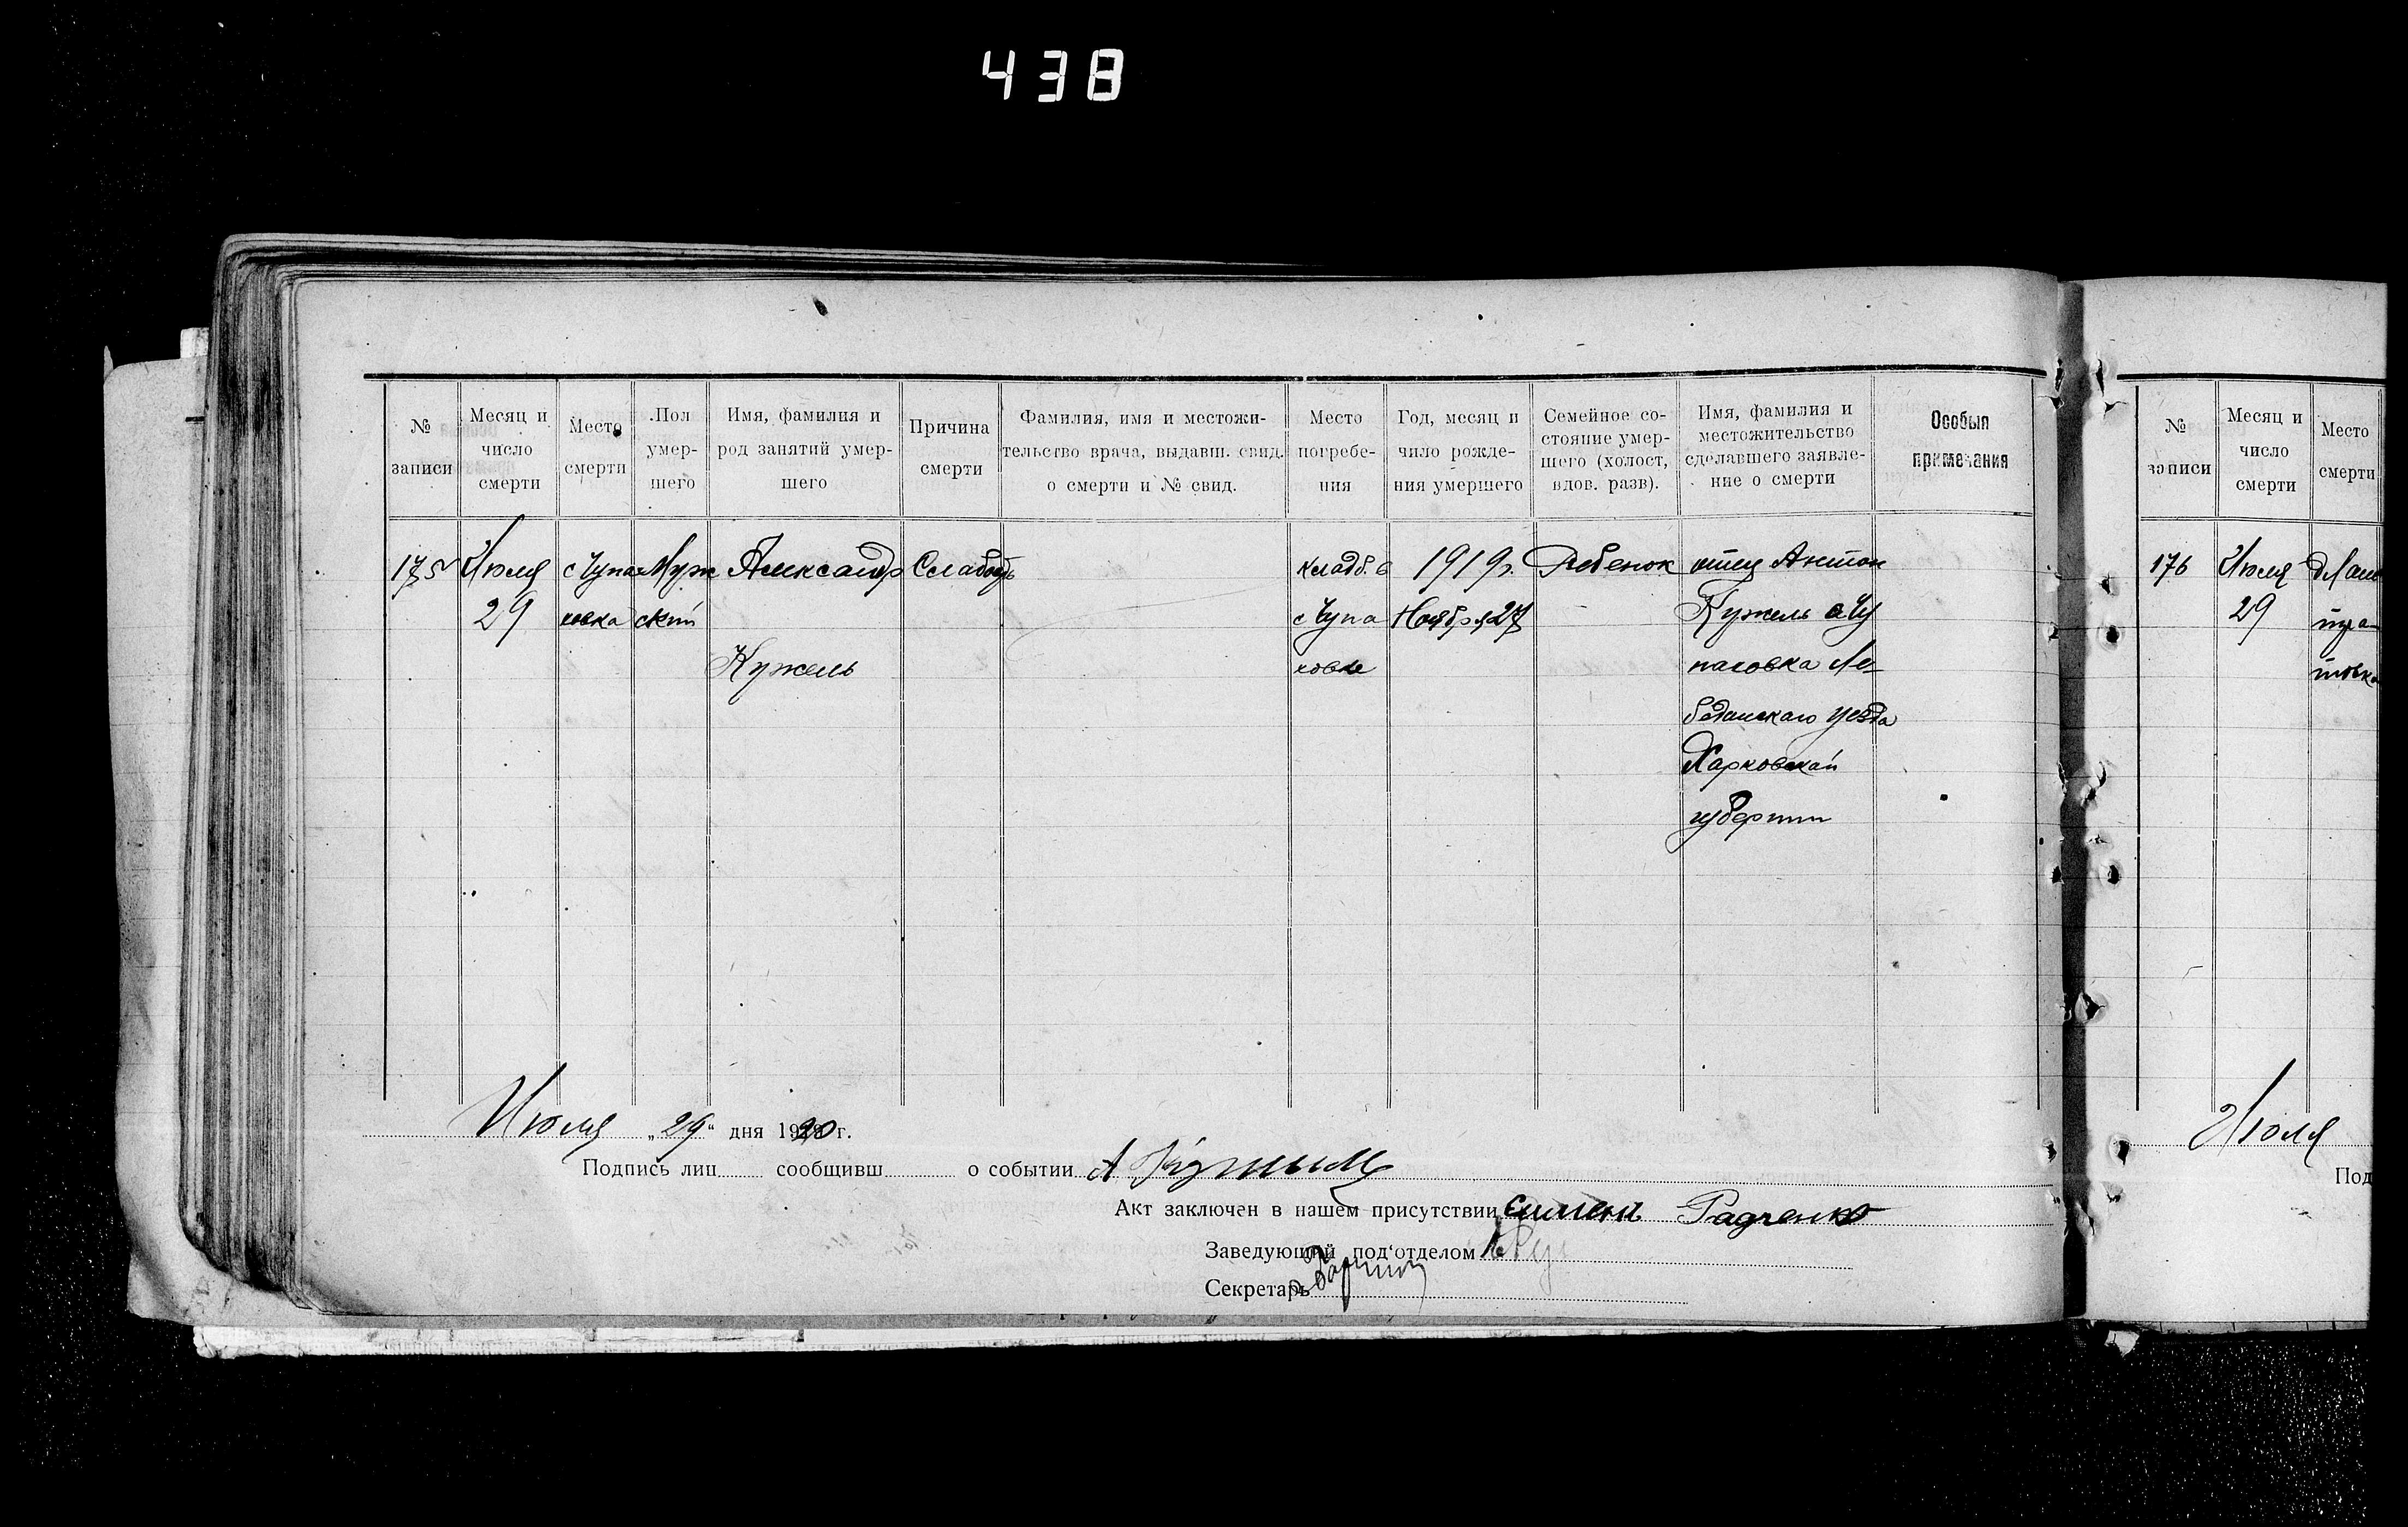 438
№ записи
Месяц и число смерти
Место смерти
Пол умер-шего
Имя, фамилия и род занятий умер-шего
Причина смерти
Фамилия, имя и местожи-тельство врача, выдавш. свид. о смерти и № свид.
Место погребе-ния
Год, месяц и чило рожде-ния умершего
Семейное со-стояние умер-шего (холост, вдов. разв).
Имя, фамилия и местожительство сделавшего заявле-ние о смерти
Особыя примечания
175
Июля
29
с Чупа
ховка
Муж
ский
Александр
Кужель
Слабость
кладб. в
с Чупа
ховке
1919г.
Ноября 27
Ребенок
отец Антон
Кужель с Чу
паховка Ле-
бединскаго уезда
Харковской
губернии
Июля „29“ дня 1920 г.
Подпись лиц сообщивш о событии А
Акт заключен в нашем присутствии Симен Радченко
Заведующий под‘отделом
Секретарь
№ записи
Месяц и число смерти
Место смерти
176
Июля
29
Июля
Под